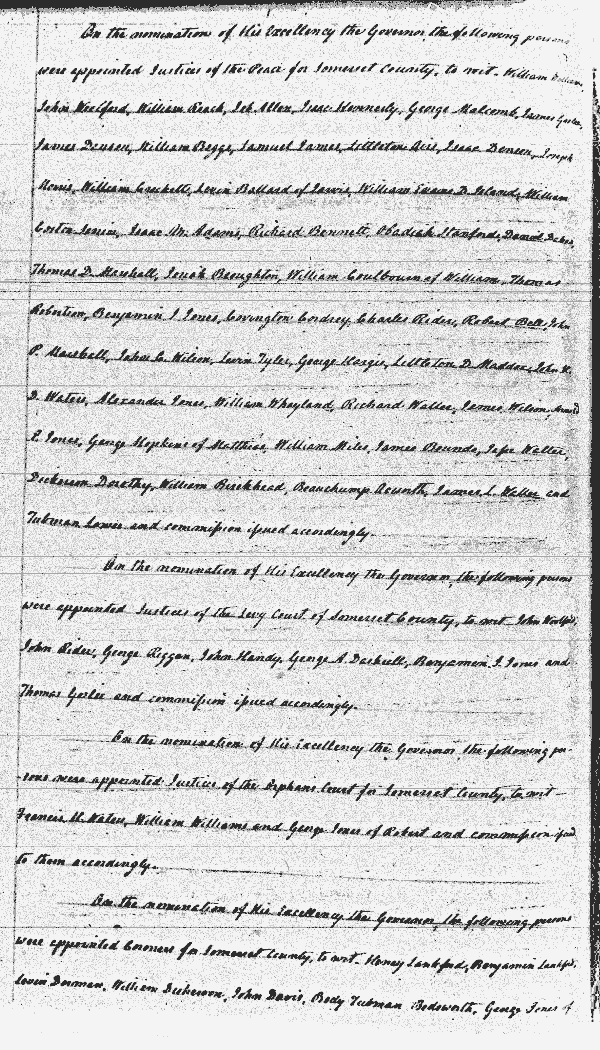 On the nomination of His Excellency the Governor the following persons
were appointed Justices of the Peace for Somerset County, to wit. William
John Woolford, William Roach, Job Allen, Isaac Kennerly, George Malcomb, James
James Denson, William Beggs, Samuel James, Littleton Aires, Isaac Denson, Joseph
Morris, William Crockett, Levin Ballard of Jarvis, William Evans D. Island, William
Coston Senior, Isaac M. Adams, Richard Bennett, Obadiah Stanford, Daniel
Thomas D. Marshall, Josiah Broughton, William Coulbourn of William, Thomas
Robertson, Benjamin I Jones, Covington Cordrey, Charles Rider, Robert Bell, John
P. Marshall, John C. Wilson, Levin Tyler, George Hargis, Littleton D. Maddox, John
D. Waters, Alexander Jones, William Whayland, Richard Waller, James Wilson,
E. Jones, George Hopkins of Matthias, William Miles, James Bounds, Jesse Walter,
Dickerson Dorothy, William Birckhead, Beauchump Acworth, James L. Waller and
Tubman Lowes and commission issued accordingly.
On the nomination of His Excellency the Governor, the following persons
were appointed Justices of the Levy Court of Somerset County, to wit John
John Rider, George Riggan, John Handy, George A Dashiell, Benjamin I. Jones and
Thomas Goslee and commission issued accordingly.
On the nomination of His Excellency the Governor the following per-
-sons were appointed Justices of the Orphans Court for Somerset County, to wit —
Francis H. Waters, William Williams and George Jones of Robert and commission issued
to them accordingly.
On the nomination of His Excellency the Governor, the following persons
were appointed Coroners for Somerset County, to wit. Henry Lankford, Benjamin Lankford,
Levin Dorman, William Dickerson, John Davis, Body Tubman Bedsworth, George Jones of